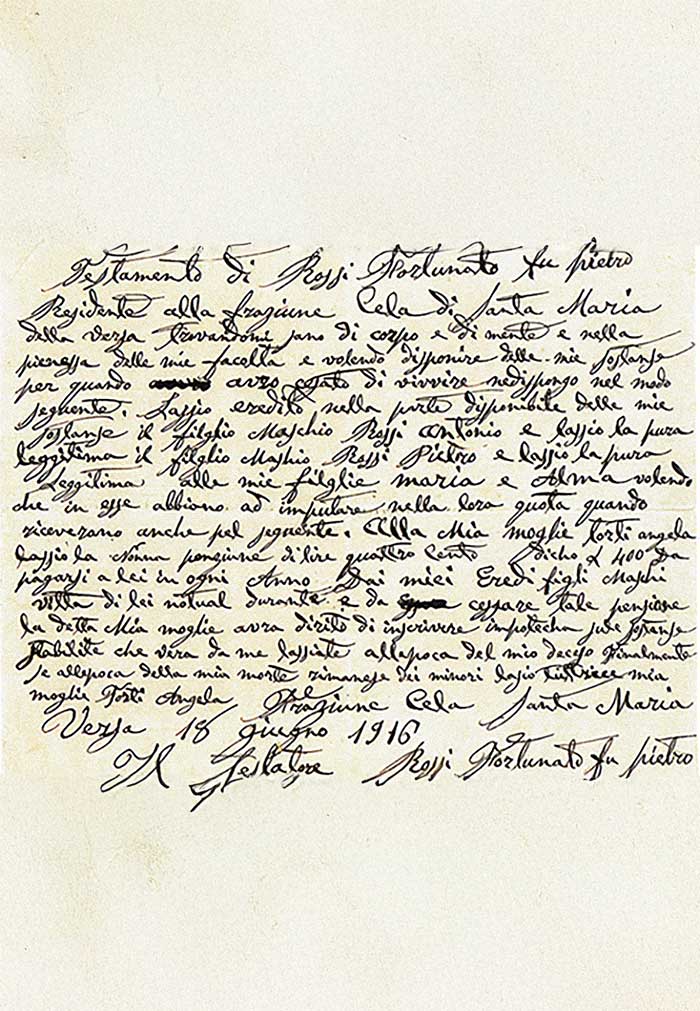 Testamento di Rossi Fortunato fu pietro
Residente alla fraziune Cela di Santa Maria
della versa trovandomi sano di corpo e di mente e nella
pienessa delle mie facella e volendo disponire delle mie sostanse
per quando avro cesato di vivvire nedispongo nel modo
seguente. Lassio eredito nella parte disponibile delle mie
sostanse il filglio Maschio Rossi antonio e lassio la pura
leggitima il filglio Mashio Rossi Pietro e lassio la pura
Leggitima alle mie filglie maria e Alma volendo
che in esse abbiono ad imputare nella lora quota quando
riceverano anche pel seguente. Alla Mia moglie torti angela
lassio la Annua penzione di lire quattro Cento dicho £ 400 Da
pagarsi a lei in ogni Anno Dai miei Eredi figli Maschi
villa di lei notual durante e da cessare tale pensione
la detta Mia moglie avra dirito di inscrivere impotecha sule sostanse
stabilite che vera da me lassiate allepoca del mio deceso Finalmente
se allepoca della mia morte rimanese dei minori lasio tutrice mia
moglie Torti Angela Fraziune Cela Santa Maria
Versa 18 giugno 1916
Il Testatore Rossi Fortunato fu pietro